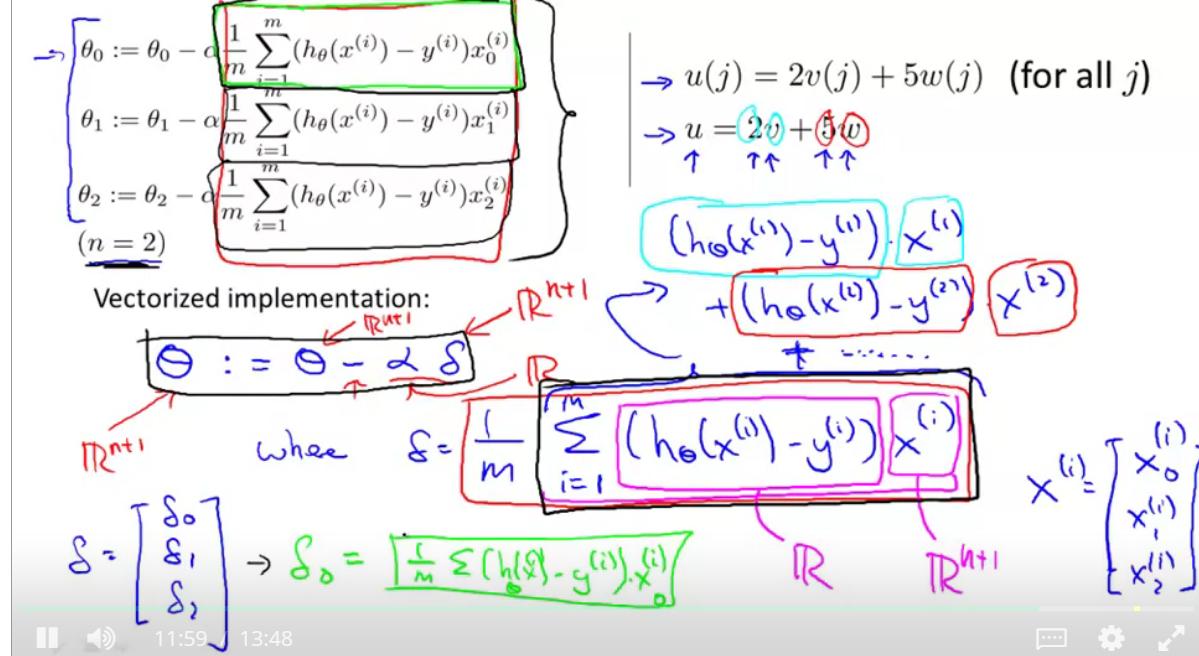 θ₀ := θ₀ − α 1/m ∑_{i=1}^{m} (h_θ(x^{(i)}) − y^{(i)})x_0^{(i)}
θ₁ := θ₁ − α 1/m ∑_{i=1}^{m} (h_θ(x^{(i)}) − y^{(i)})x_1^{(i)}
θ₂ := θ₂ − α 1/m ∑_{i=1}^{m} (h_θ(x^{(i)}) − y^{(i)})x_2^{(i)}
(n = 2)
→ u(j) = 2v(j) + 5w(j) (for all j)
→ u = 2v + 5w
(h_θ(x^{(1)}) − y^{(1)}) · x^{(1)}
+ (h_θ(x^{(2)}) − y^{(2)}) x^{(2)}
+ ........
Vectorized implementation:
ℝ^{n+1}
ℝ^{n+1}
θ := θ − α δ
ℝ
ℝ^{n+1}
where δ = 1/m ∑_{i=1}^{m} (h_θ(x^{(i)}) − y^{(i)}) x^{(i)}
ℝ
ℝ^{n+1}
x^{(i)} = [x_0^{(i)} x_1^{(i)} x_2^{(i)}]
δ = [δ₀ δ₁ δ₂] → δ₀ = 1/m ∑ (h_θ(x) − y^{(i)}) · x_0^{(i)}
11:59 / 13:48